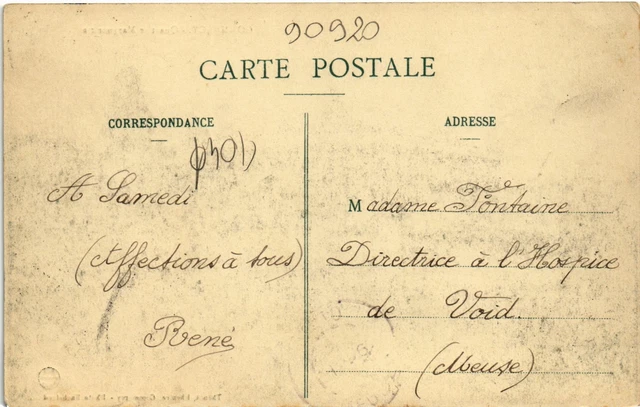 90920
CARTE POSTALE
CORRESPONDANCE
ADRESSE
A Samedi
(Affections à tous)
René
Madame Fontaine
Directrice à l'Hospice
de Void.
(Meuse)